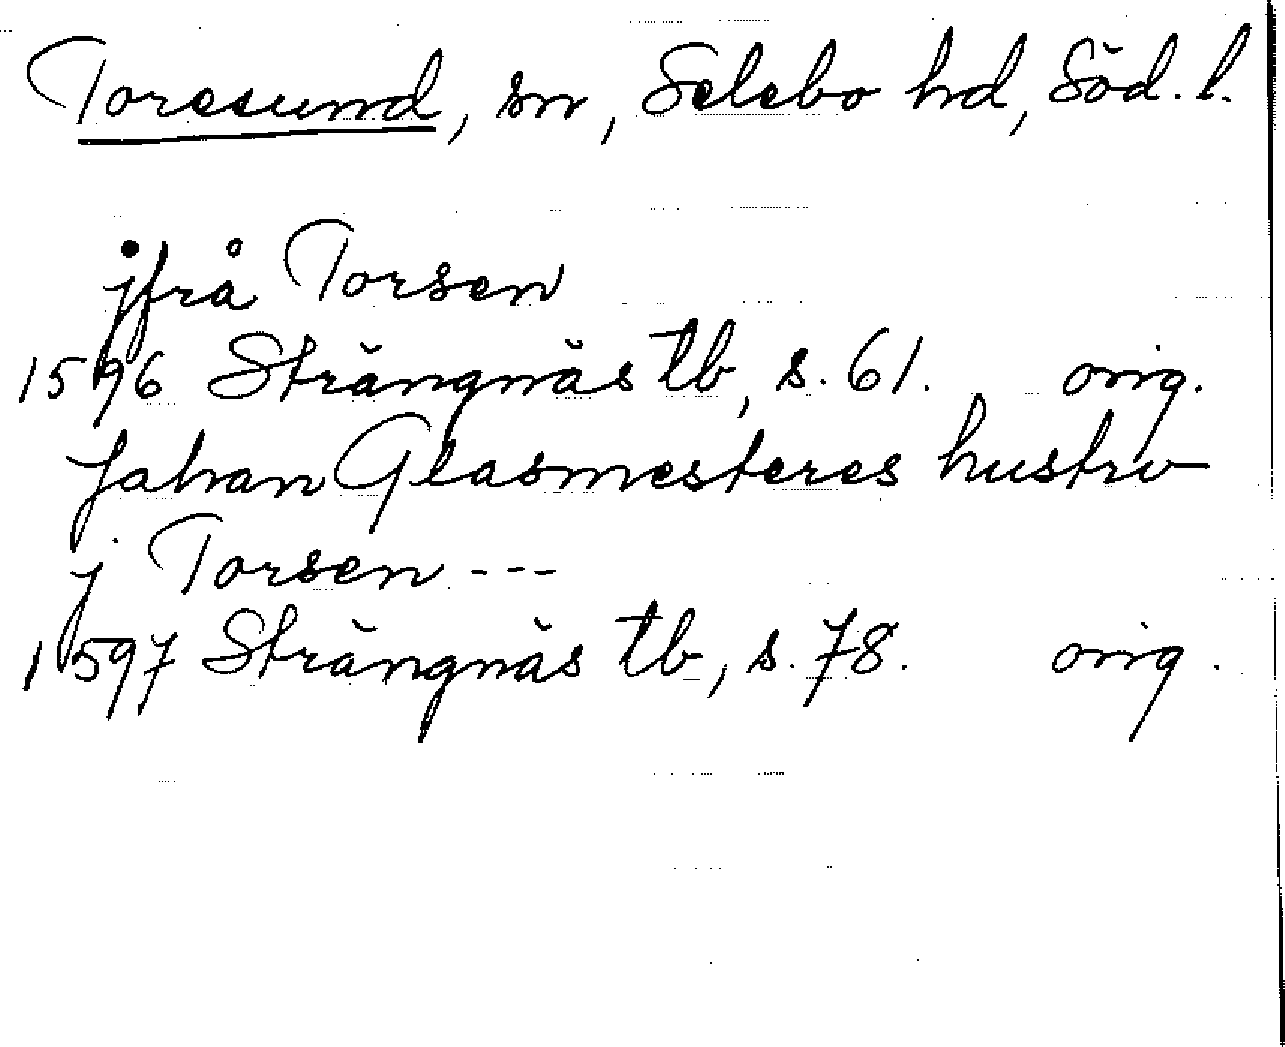 Toresund, sn, Selebo hd, Söd. l.
jfrå Torsen
1596 Strängnäs tb, s. 61. orig.
Johan Glasmesteres hustrv
j Torsen ---
1597 Strängnäs tb, s. 78. orig.